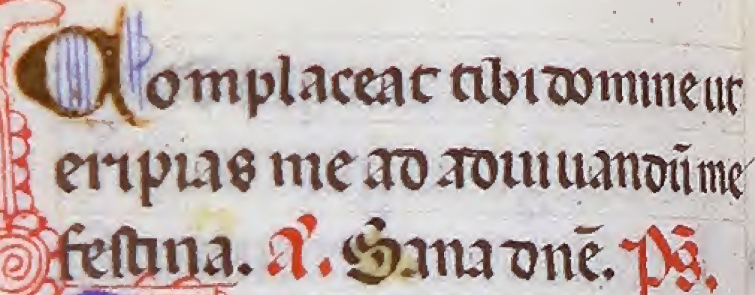 Complaceat tibi domine ut
eripias me ad adiuuandū me
festina. A. Sana dnē. Ps̄.